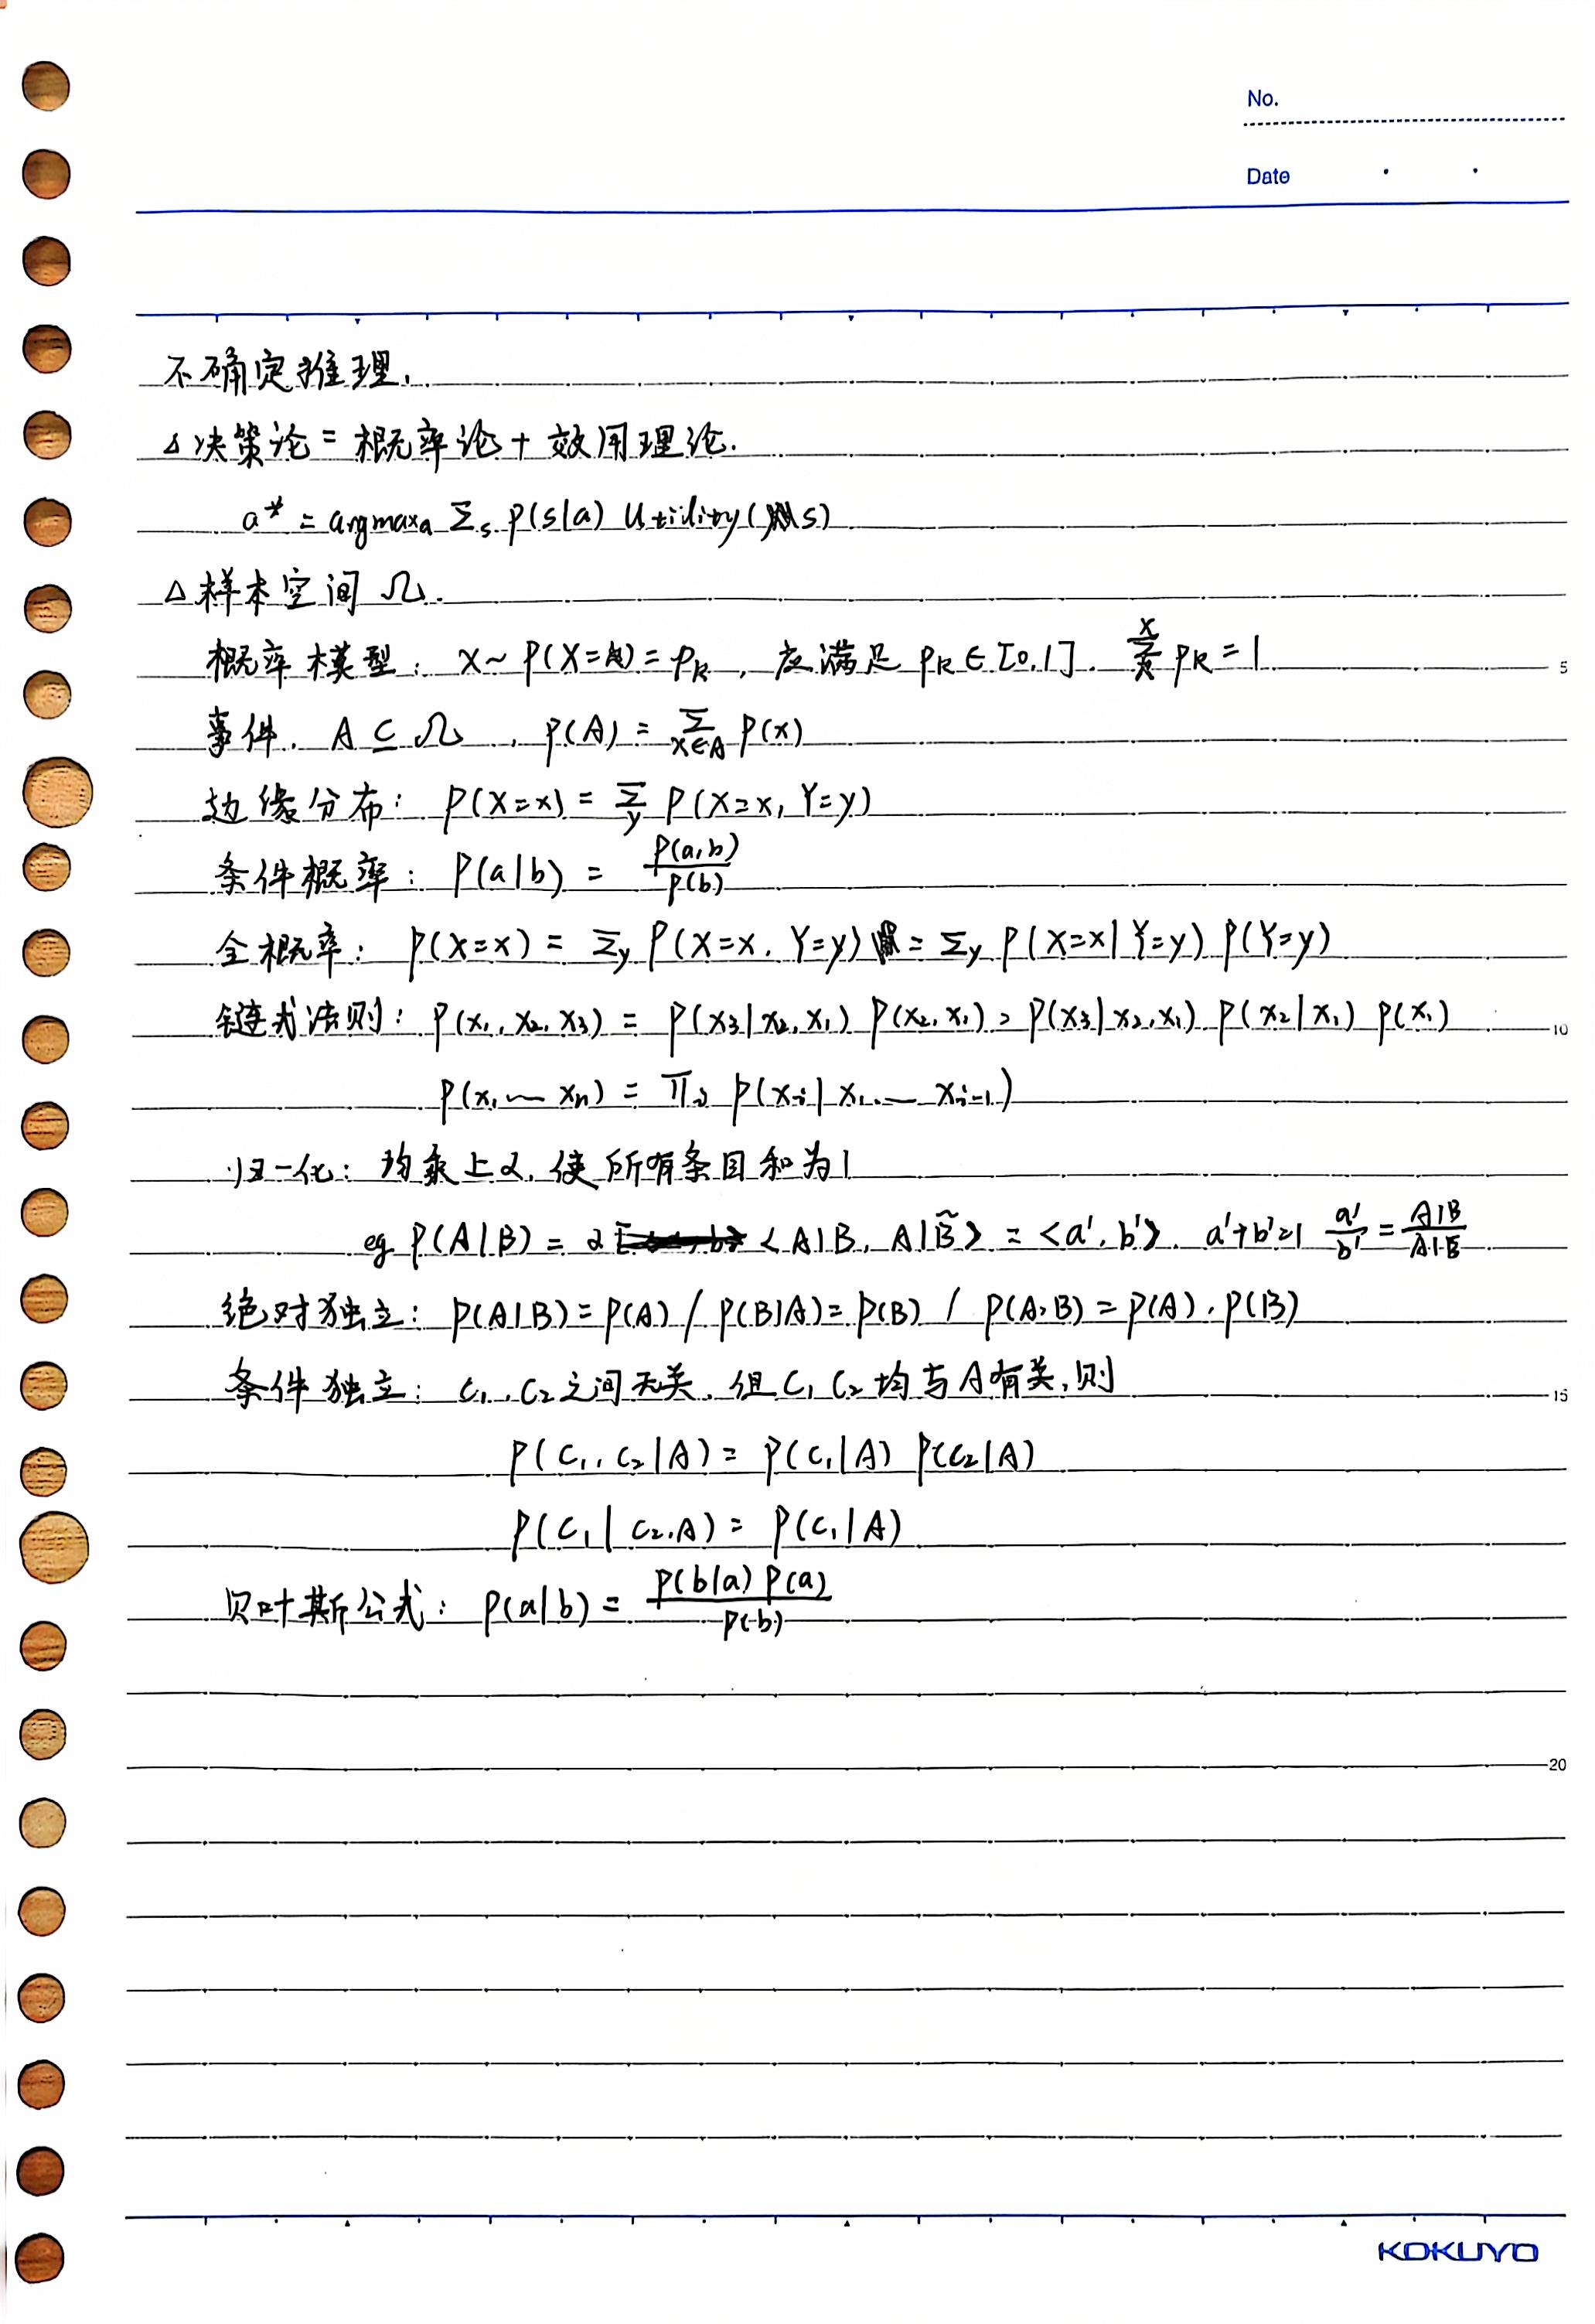 No.
Date
不确定推理.
△决策论 = 概率论 + 效用理论.
a* = argmaxₐ Σₛ P(s|a) Utility(s)
△样本空间 Ω.
概率模型: X~P(X=k)=pₖ, 应满足 pₖ∈[0,1]. pₖ=1
5
事件. A⊆Ω, P(A) = Σ_{x∈A} P(x)
边缘分布: P(X=x) = Σ_y P(X=x, Y=y)
条件概率: P(a|b) = P(a,b)/P(b)
全概率: P(X=x) = Σ_y P(X=x, Y=y) = Σ_y P(X=x|Y=y) P(Y=y)
链式法则: P(x₁,x₂,x₃) = P(x₃|x₂,x₁) P(x₂,x₁) = P(x₃|x₂,x₁) P(x₂|x₁) P(x₁)
10
P(x₁…xₙ) = Πᵢ P(xᵢ|x₁…xᵢ₋₁)
归一化: 均乘上α, 使所有条目和为1
eg P(A|B) = α <A|B, A|B̃> = <a', b'>. a'+b'=1 a'/b' = A|B/A|B̃
绝对独立: P(A|B)=P(A) / P(B|A)=P(B) / P(A,B)=P(A)·P(B)
条件独立: C₁,C₂之间无关, 但C₁C₂均与A有关,则
15
P(C₁,C₂|A) = P(C₁|A) P(C₂|A)
P(C₁|C₂,A) = P(C₁|A)
贝叶斯公式: P(a|b) = P(b|a)P(a)/P(b)
20
KOKUYO